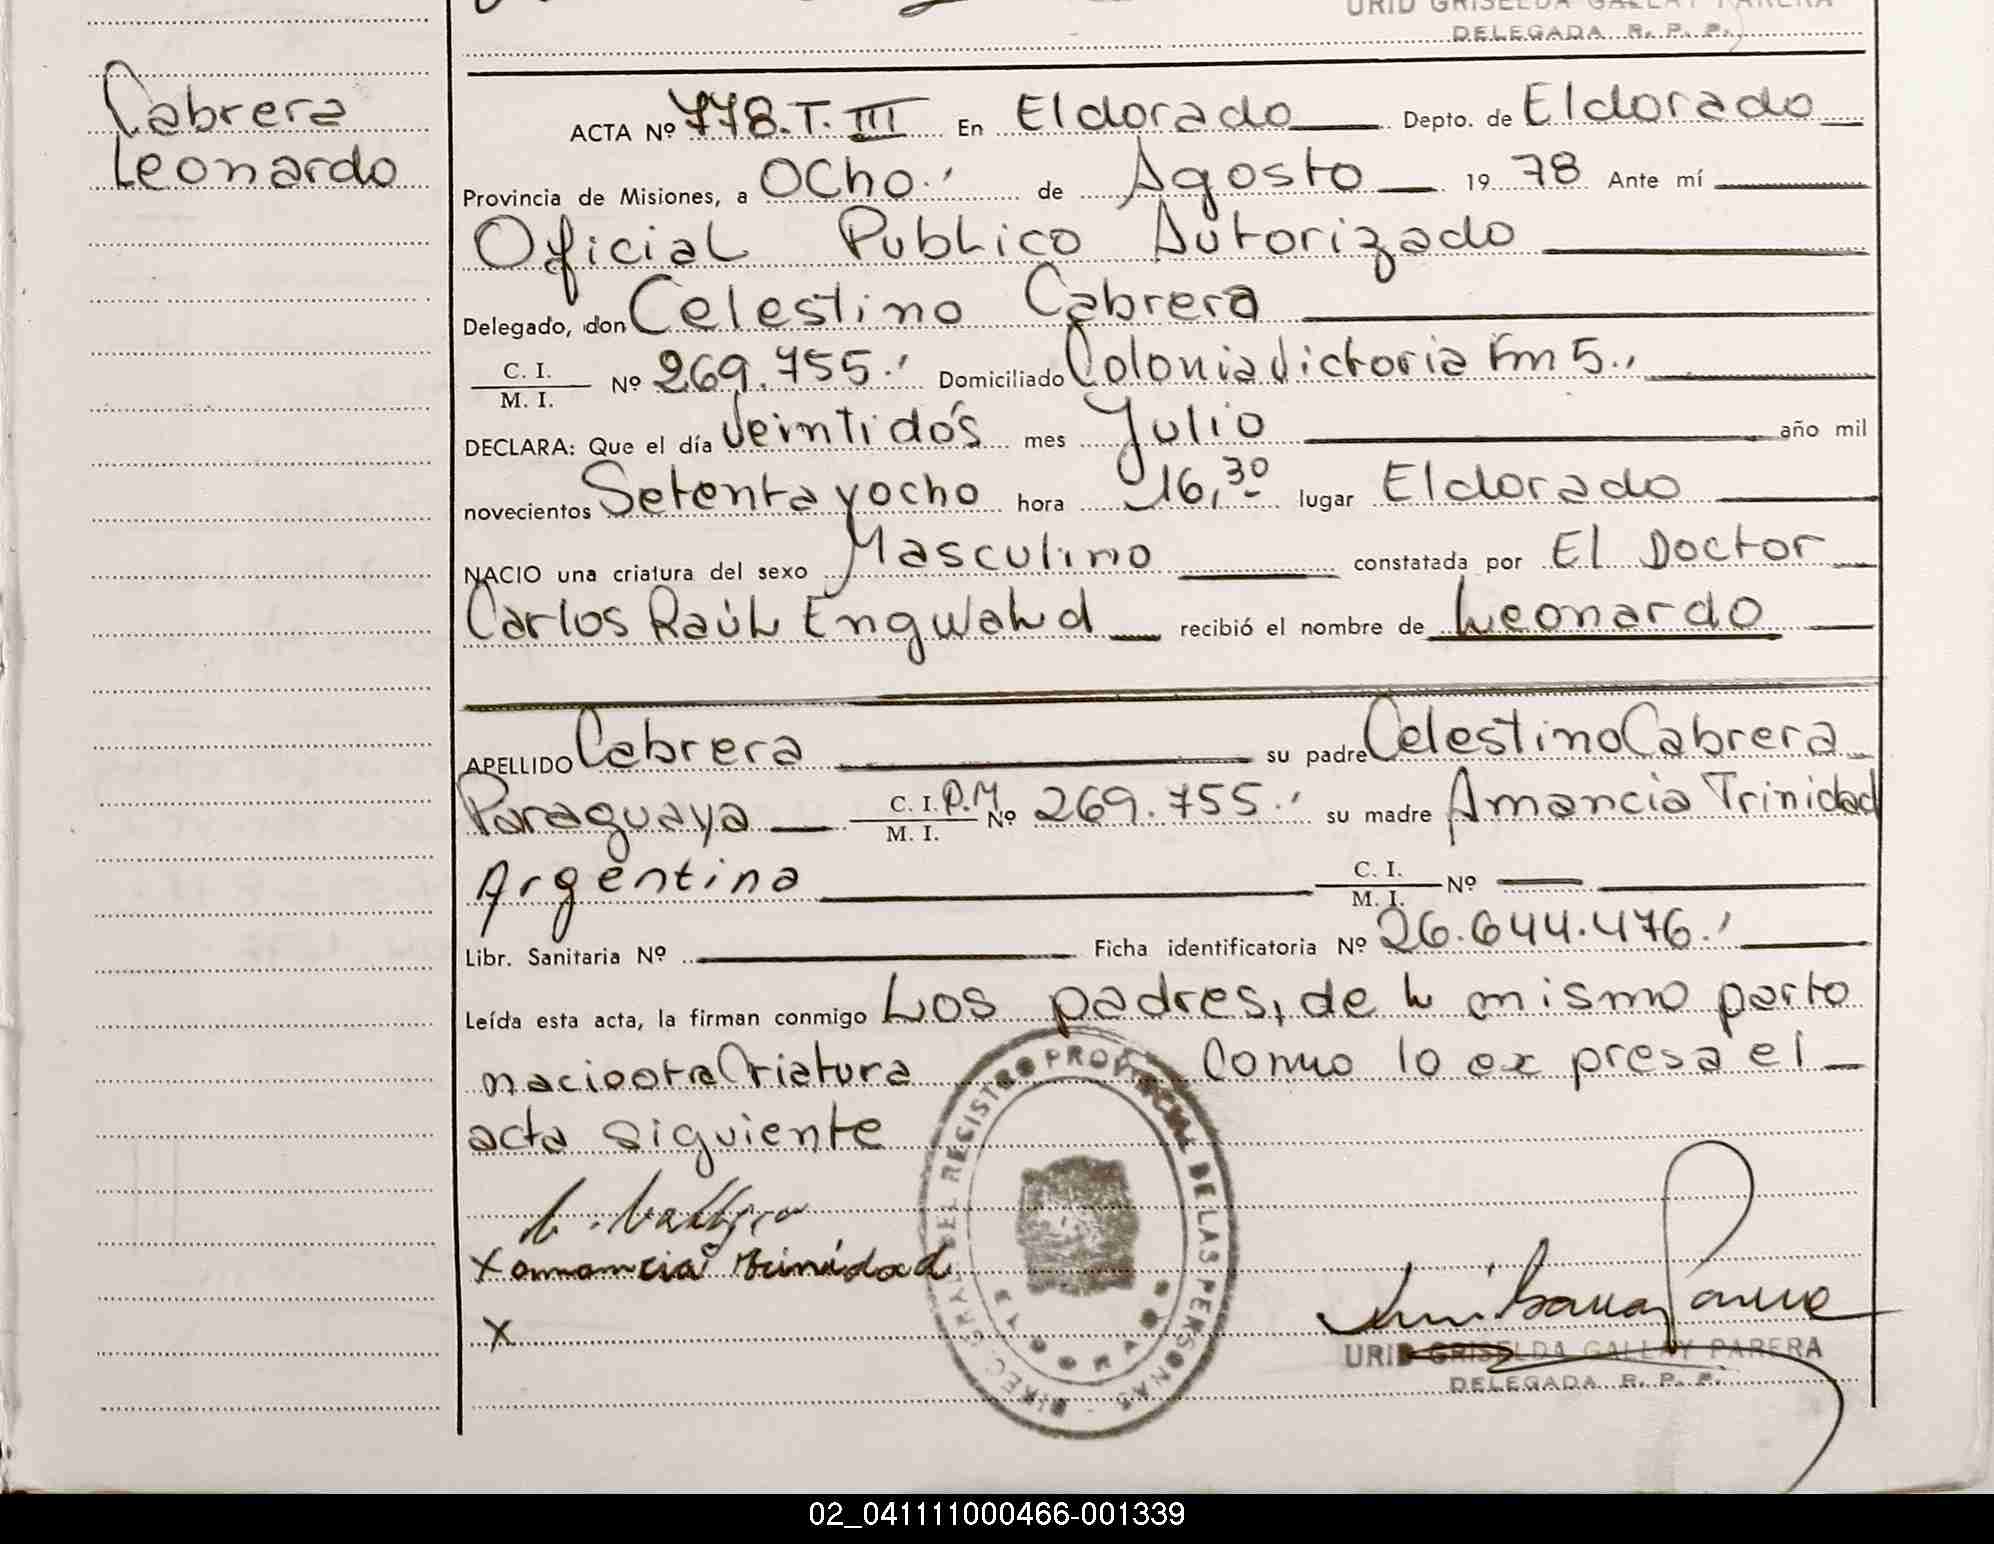 URID GRISELDA GALLAY PARERA
DELEGADA R. P. P.
Cabrera
Leonardo
ACTA Nº 778.T.III En Eldorado Depto. de Eldorado
Provincia de Misiones, a Ocho.' de Agosto 1978 Ante mí
Oficial Publico Autorizado
Delegado, don Celestino Cabrera
C. I.
M. I. Nº 269.755.' Domiciliado Colonia Victoria Km 5.,
DECLARA: Que el día Veintidós mes Julio año mil
novecientos Setenta y ocho hora 16,30 lugar Eldorado
NACIO una criatura del sexo Masculino constatada por El Doctor
Carlos Raúl Engwald recibió el nombre de Leonardo
APELLIDO Cabrera su padre Celestino Cabrera
Paraguaya C. I. P.M. Nº 269.755.' su madre Amancia Trinidad
M. I.
Argentina C. I. Nº
M. I.
Libr. Sanitaria Nº Ficha identificatoria Nº 26.644.476.'
Leída esta acta, la firman conmigo Los padres, de l mismo parto
nacio otra Criatura Como lo expresa el
acta siguiente
DIREC. GRAL. DEL REGISTRO PROVINCIAL DE LAS PERSONAS
ELDORADO
X amancia trinidad
X
URID GRISELDA GALLAY PARERA
DELEGADA R. P. P.
02_041111000466-001339